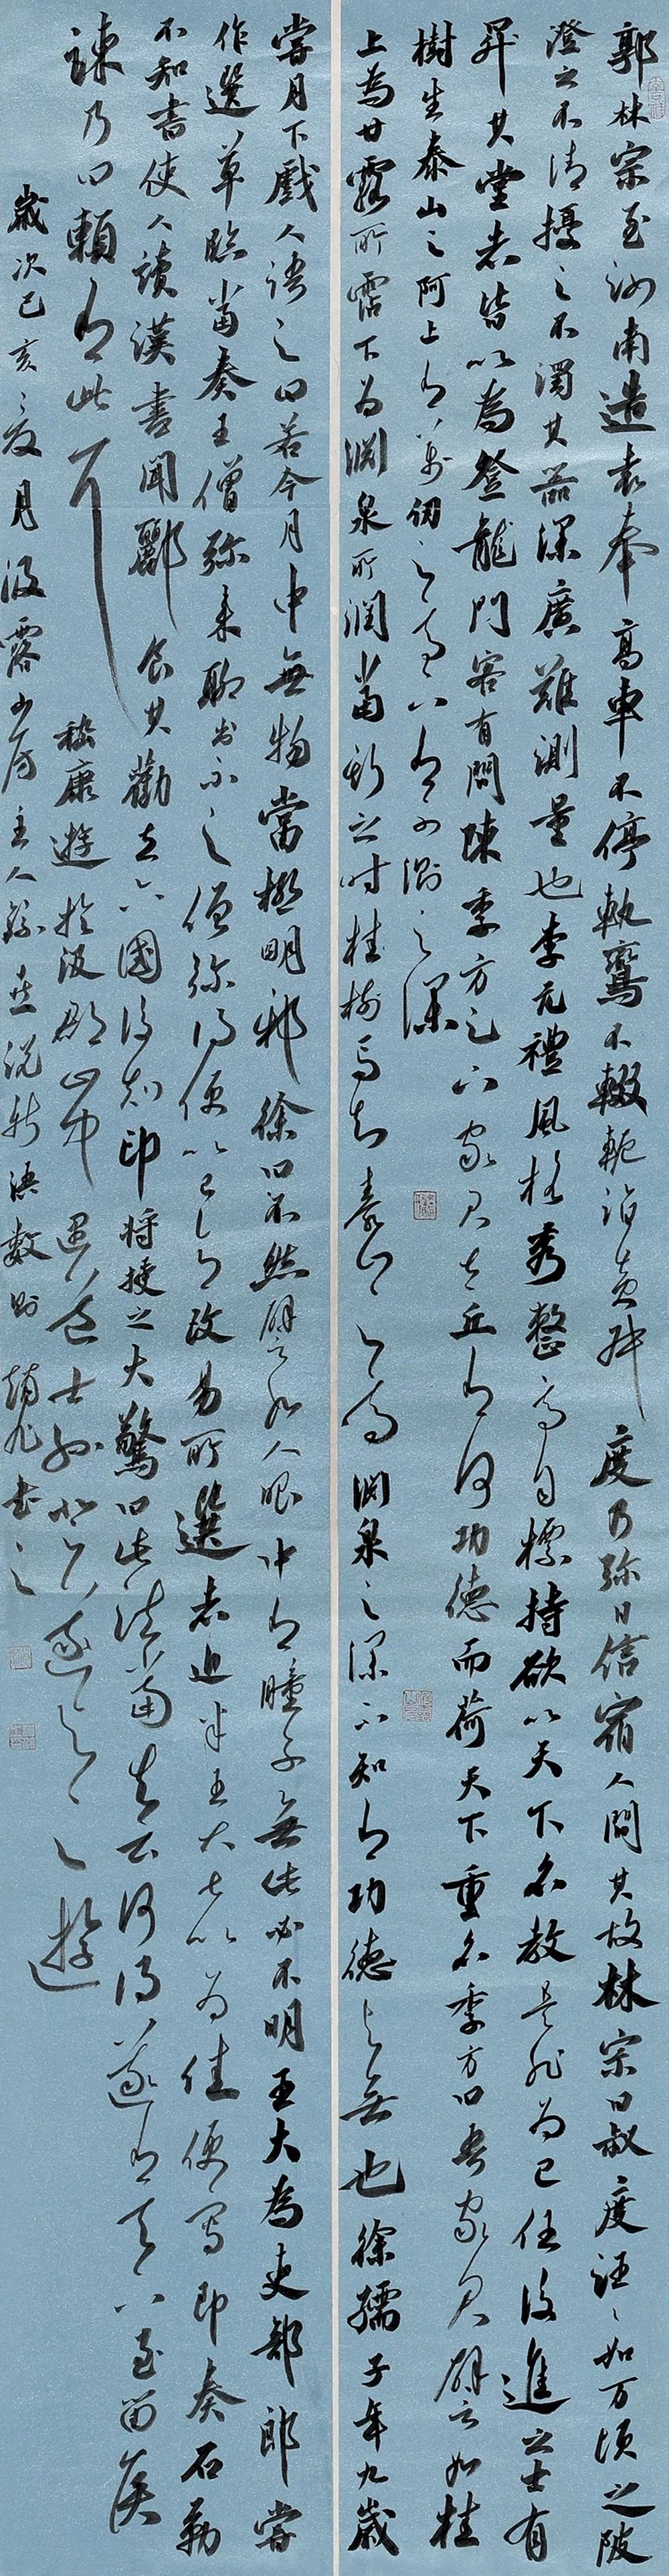 郭林宗至汝南造袁奉高車不停軌鸞不輟軛詣黃叔度乃彌日信宿人問其故林宗曰叔度汪汪如万頃之陂
澄之不清擾之不濁其器深廣難測量也李元禮風格秀整高自標持欲以天下名教是非為己任後進之士有
昇其堂者皆以為登龍門客有問陳季方足下家君太丘有何功德而荷天下重名季方曰吾家君譬如桂
樹生泰山之阿上有萬仞之高下有不測之深
上為甘露所霑下為淵泉所潤當斯之時桂樹焉知泰山之高淵泉之深不知有功德與無也徐孺子年九歲
嘗月下戲人語之曰若令月中無物當極明邪徐曰不然譬如人眼中有瞳子無此必不明王大為吏部郎嘗
作選草臨當奏王僧彌來聊出示之僧彌得便以己意改易所選者近半王大甚以為佳更寫即奏石勒
不知書使人讀漢書聞酈食其勸立六國後刻印將授之大驚曰此法當失云何得遂有天下至留侯
諫乃曰賴有此耳
嵇康遊於汲郡山中遇道士孫登遂與之遊
歲次己亥之夏月汲霧山房主人錄世說新語數則